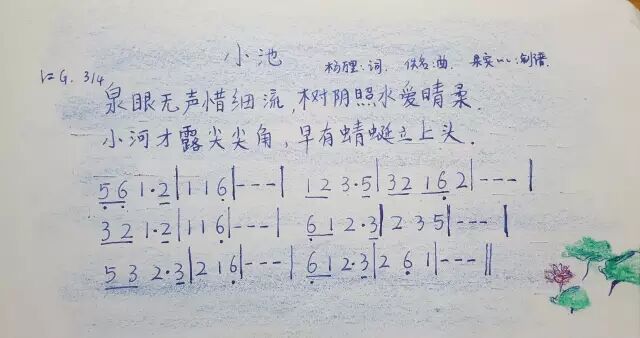 小池
1=G. 3/4 杨万里:词. 佚名:曲. 果实:制谱.
泉眼无声惜细流,树阴照水爱晴柔.
小河才露尖尖角,早有蜻蜓立上头.
5 6 1·2|1 1 6|---| 1 2 3·5|3 2 1 6 2|---|
3 2 1·2|1 1 6|---| 6 1 2·3|2 3 5|---|
5 3 2·3|2 1 6|---| 6 1 2·3|2 6 1|---||